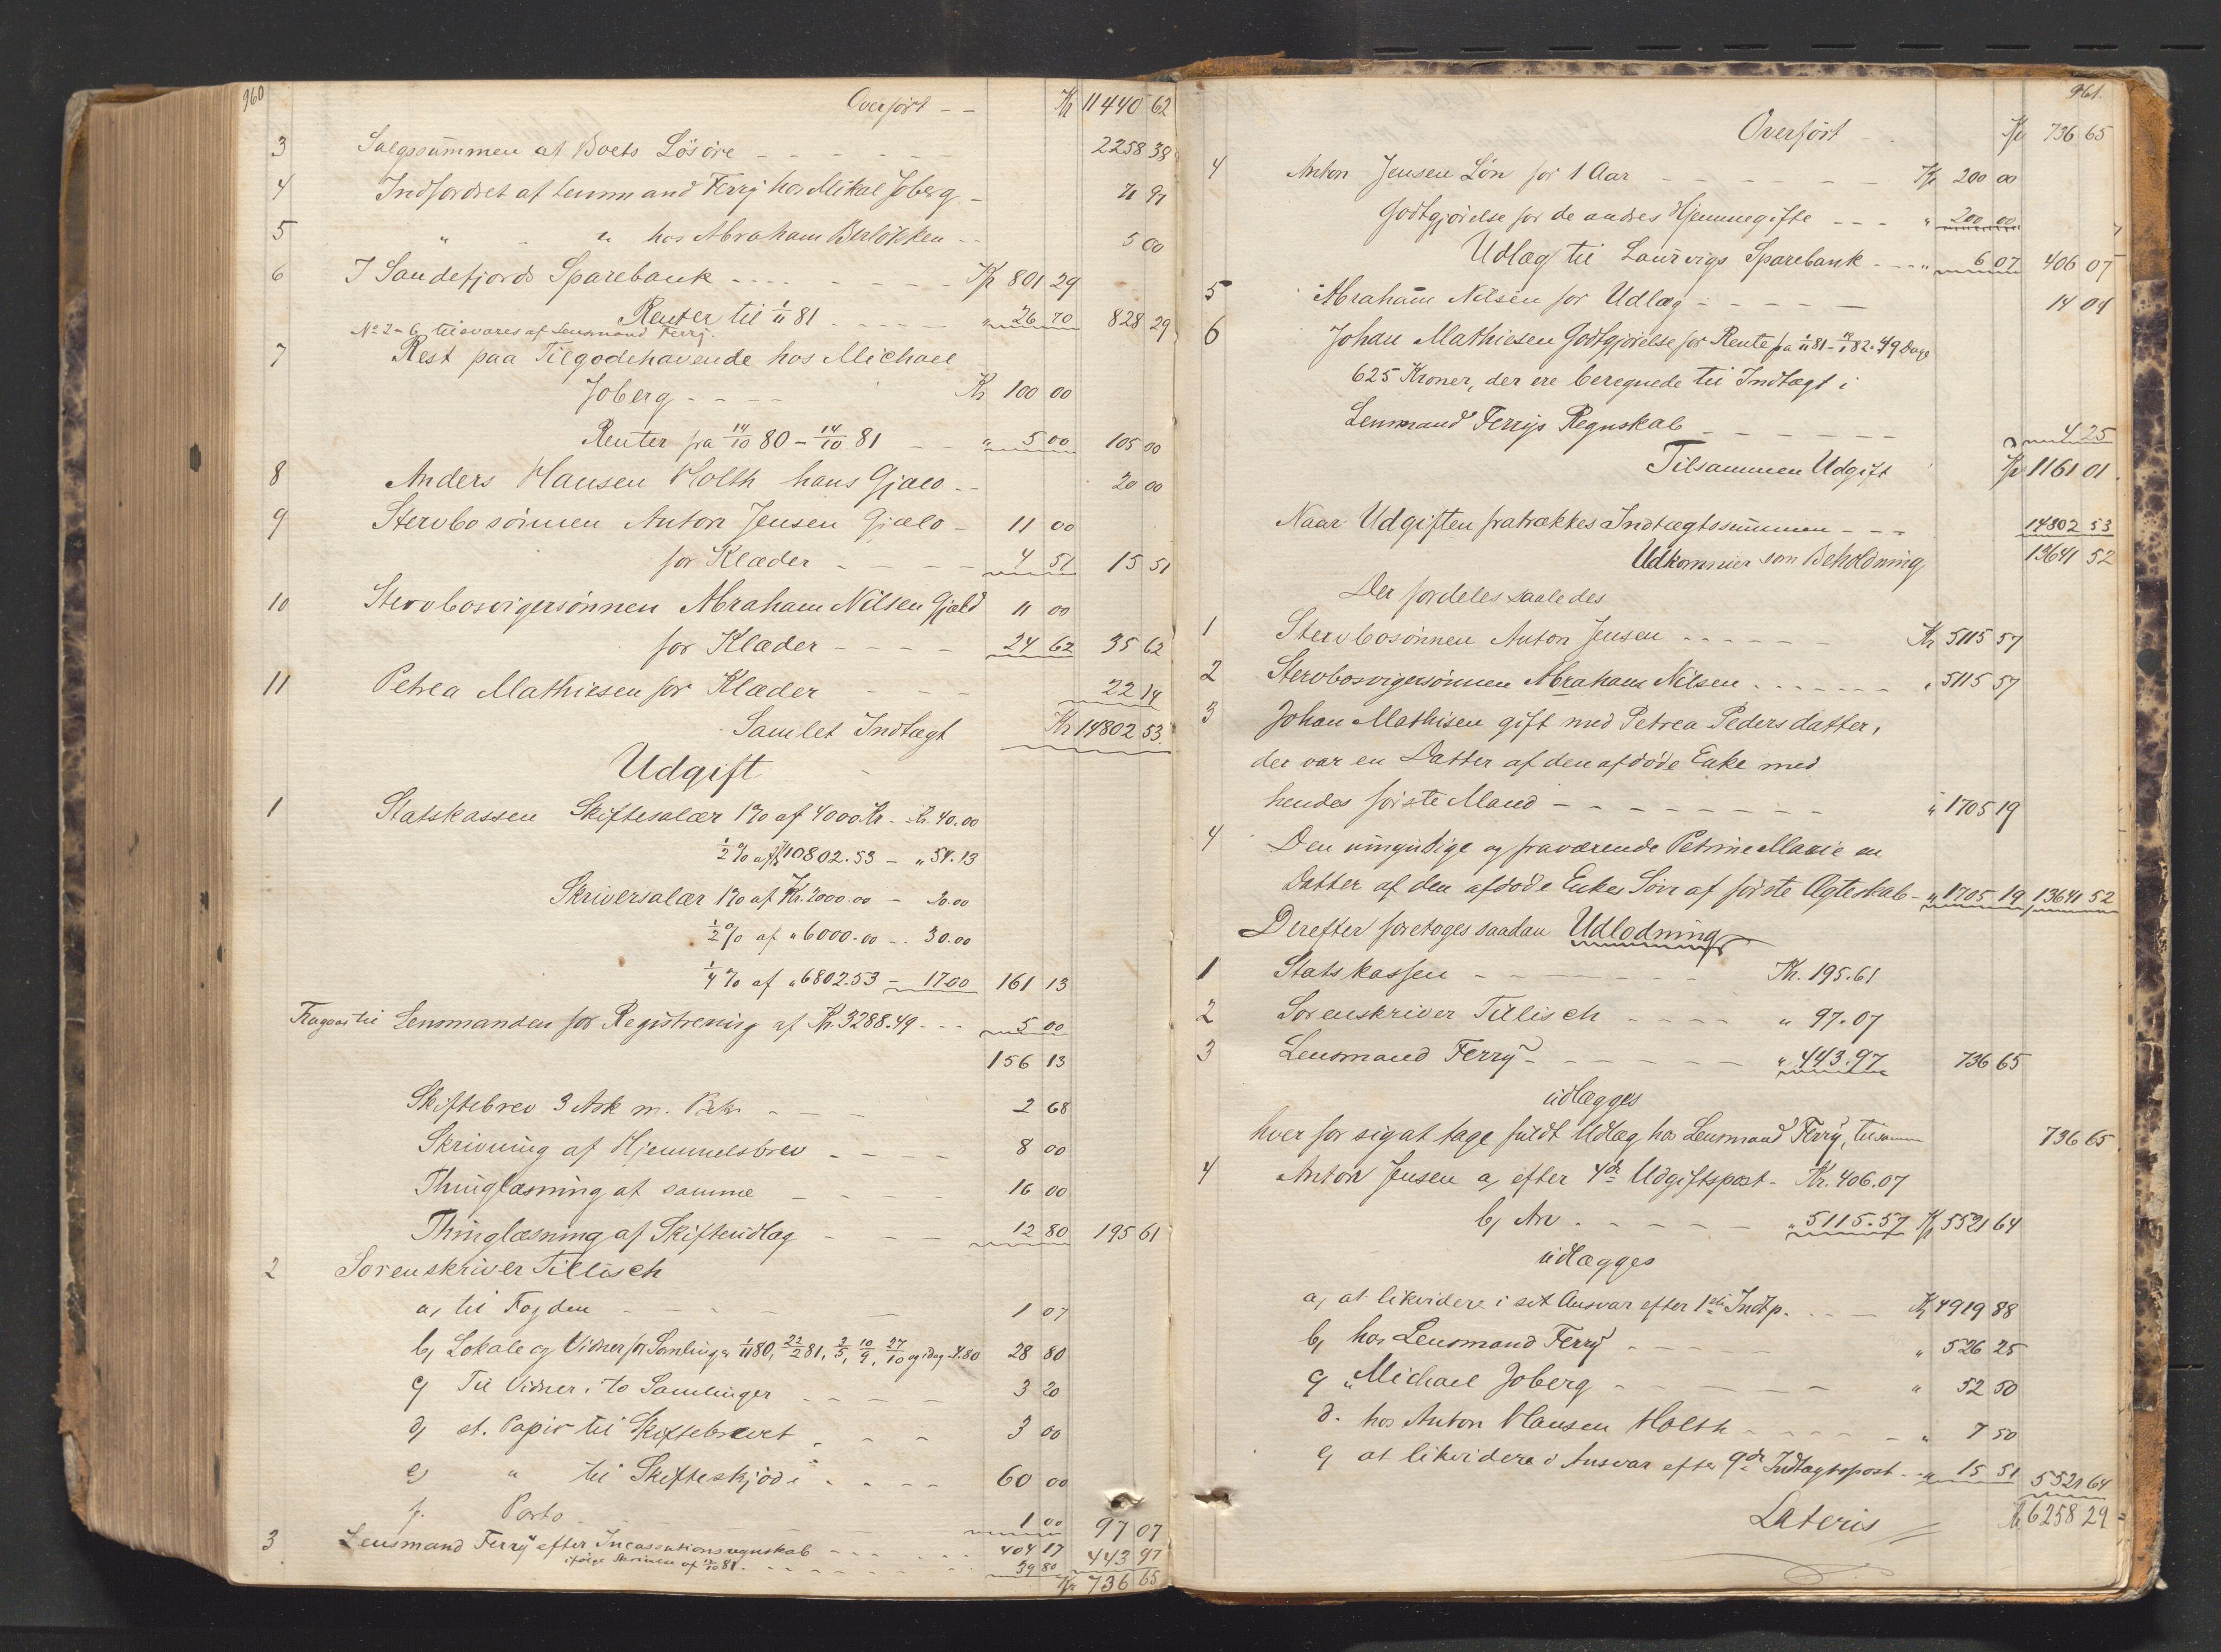 960
Overført -- Kr 11440 62
3 Salgssummen af Boets Løsøre - - - - - - 2258 38
4 Indfordret af Lensmand Ferry hos Mikal Joberg - 71 97
5 " " " hos Abraham Berløkken -- 5 00
6 I Sandefjords Sparebank - - - - - - Kr 801 29
Renter til 1/11 81 - - - - " 26 70 828 29
No 2-6 tilsvares af Lensmand Ferry.
7 Rest paa Tilgodehavende hos Michael
Joberg - - - - Kr 100 00
Renter fra 14/10 80 - 14/10 81 - - " 5 00 105 00
8 Anders Hansen Holth hans Gjæld -- 20 00
9 Stervbosønnen Anton Jensen Gjæld - 11 00
for Klæder - - - - 4 51 15 51
10 Stervbosvigersønnen Abraham Nilsen Gjæld 11 00
for Klæder - - - - 24 62 35 62
11 Petrea Mathiesen for Klæder - - - 22 14
Samlet Indtægt Kr 14802 53.
Udgift
1 Statskassen Skiftesalær 1% af 4000 Kr - Kr. 40.00
1/2% af Kr 10802.53 - " 54.13
Skriversalær 1% af Kr. 2000.00 - 20.00
1/2% af " 6000.00 - 30.00
1/4% af " 6802.53 - 17.00 161 13
Fragaar til Lensmanden for Registrering af Kr. 3288.49 - - - 5 00
156 13
Skiftebrev 3 Ark m. - - - 2 68
Skrivning af Hjemmelsbrev - - - - 8 00
Thinglæsning af samme - - - - 16 00
Thinglæsning af Skifteudlæg - - - 12 80 195 61
2 Sorenskriver Tillisch
a, til Fogden - - - - 1 07
b, Lokale og Vidner for Samlinger 1/11 80, 22/2 81, 2/5, 10/9, 27/10 og idag - 4.80 28 80
c, Til Vidner i to Samlinger - - - - 3 20
d, st. Papir til Skiftebrevet - - - 3 00
e, " til Skifteskjøde - - - - 60 00
f. Porto - - - - 1 00 97 07
3 Lensmand Ferry efter Incassationsregnskab - - - - - 404 17
ifølge Skrivelse af 81. - - - - - 39 80 443 97
Kr 736 65
961.
Overført - Kr 736 65
4 Anton Jensen Løn for 1 Aar - - - - - - Kr 200 00
Godtgjørelse for de andres Hjemmegifte - - - " 200 00
Udlæg til Laurvigs Sparebank - - - " 6 07 406 07
5 Abraham Nilsen for Udlæg - - - - - 14 04
6 Johan Mathiesen Godtgjørelse for Rente fra 1/11 81 - 82. 49 Dage
625 Kroner, der ere beregnede til Indtægt i
Lensmand Ferrys Regnskab - - - - - - " 4 25
Tilsammen Udgift Kr 1161 01.
Naar Udgiften fratrækkes Indtægtssummen - - - 14802 53
Udkommer som Beholdning 13641 52
Der fordeles saaledes
1 Stervbosønnen Anton Jensen - - - - - Kr 5115 57
2 Stervbosvigersønnen Abraham Nilsen - - - - - " 5115 57
3 Johan Mathisen gift med Petrea Pedersdatter,
der var en Datter af den afdøde Enke med
hendes første Mand - - - - - - - - " 1705 19
4 Den umyndige og fraværende Petrine Marie en
Datter af den afdøde Enkes Søn af første Ægteskab - " 1705 19 13641 52
Derefter foretoges saadan Udlodning
1 Statskassen - - - - - - Kr. 195.61
2 Sorenskriver Tillisch - - - - " 97.07
3 Lensmand Ferry - - - - - - " 443.97 736 65
udlægges
hver for sig at tage fuldt Udlæg hos Lensmand Ferry, tilsamm 736 65
4 Anton Jensen a, efter 4de Udgiftspost - Kr. 406.07
b, Arv - - - - - " 5115.57 Kr 5521 64
udlægges
a, at likvidere i sit Ansvar efter 1ste Indtp. - - - Kr 4919 88
b, hos Lensmand Ferry - - - - - " 526 25
c, " Michael Joberg - - - - - - " 52 50
d. hos Anton Hansen Holth - - - - - " 7 50
e, at likvidere i Ansvar efter 9de Indtægtspost - " 15 51 5521 64
Lateris Kr 6258 29